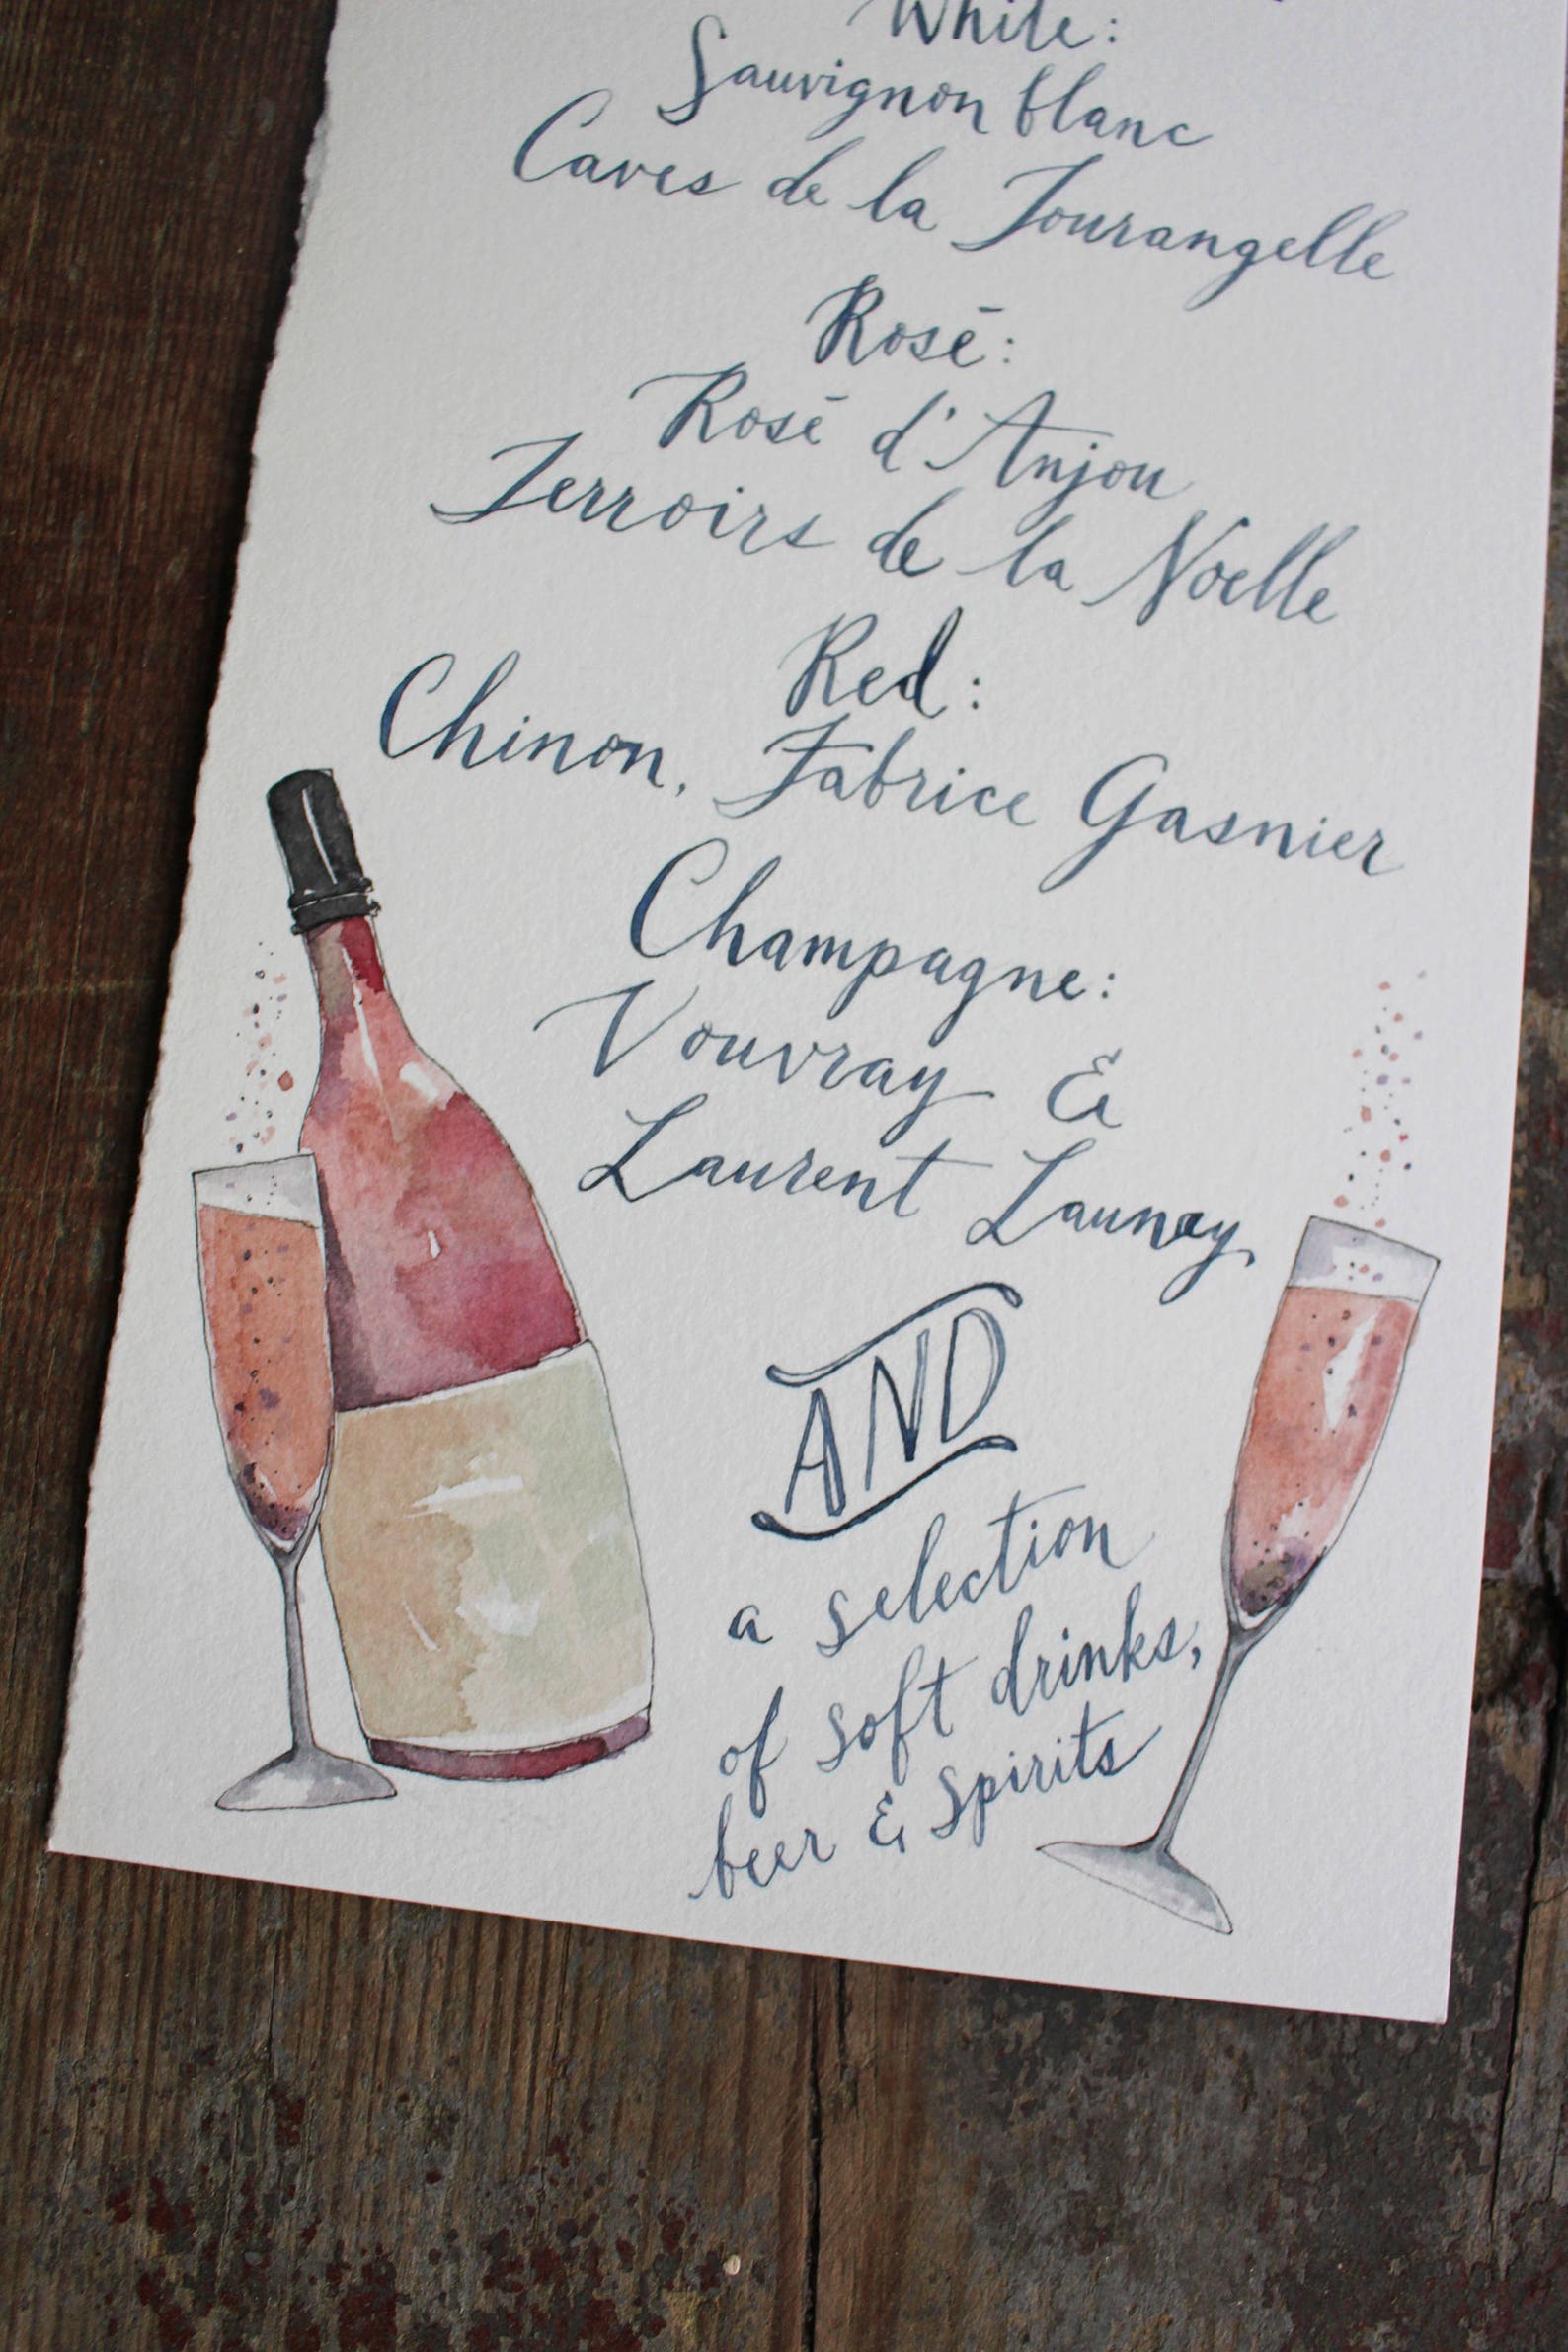 White:
Sauvignon blanc
Caves de la Tourangelle
Rosé:
Rosé d'Anjou
Terroirs de la Noelle
Red:
Chinon, Fabrice Gasnier
Champagne:
Vouvray &
Laurent Launay
AND
a selection
of soft drinks,
beer & spirits